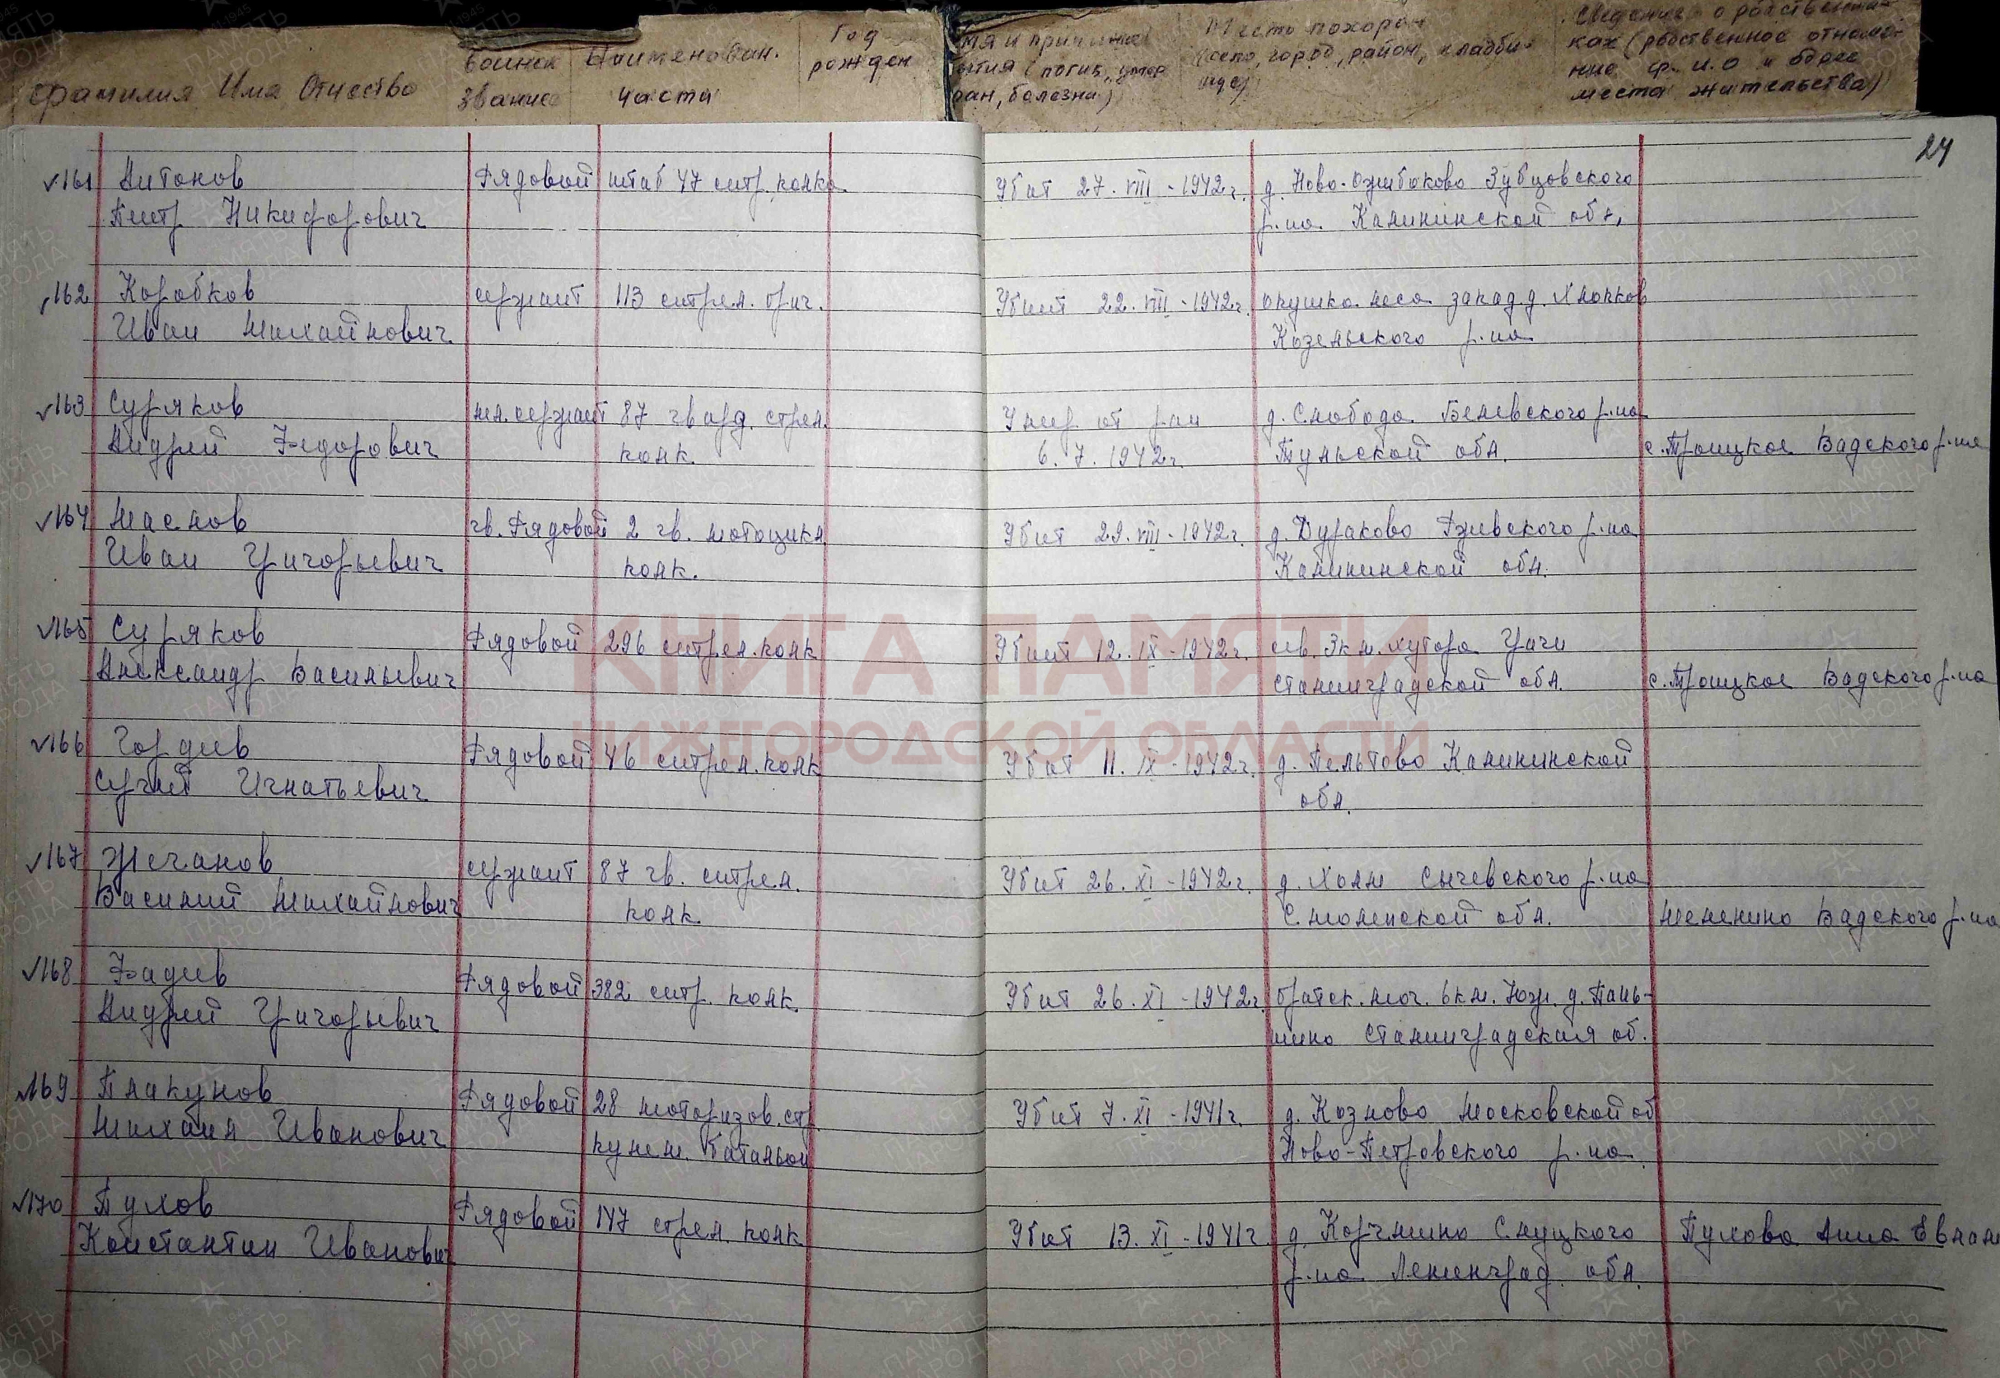 Фамилия Имя Отчество
воинск звание
Наименован. части
Год рожден
(погиб, умер
ран, болезни)
Место похорон
(село, город, район, кладби-
ще)
Сведения о родственни-
ках (родственное отноше-
ние ф.и.о и адрес
места жительства)
24
161 Антонов Рядовой штаб 47 стр. полка Убит 27.VIII-1942г. д. Ново-Ожибоково Зубцовского
Петр Никифорович р-на Калининской обл.
162 Коробков сержант 113 стрел. бриг. Убит 22.VIII-1942г. опушка леса запад. д.
Иван Михайлович Козельского р-на
163 Суряков мл. сержант 87 гвард. стрел. Умер от ран д. Слобода Белевского р-на
Андрей Федорович полк. 6.7.1942г. Тульской обл. с. Троицкое Вадского р-на
164 Маслов гв. Рядовой 2 гв. мотоцикл Убит 29.VIII-1942г. д. Дураково Ржевского р-на
Иван Григорьевич полк. Калининской обл.
165 Суряков Рядовой 296 стрел. полк Убит 12.IX-1942г. сев. 3км. хутора Грачи
Александр Васильевич Сталинградской обл. с. Троицкое Вадского р-на
166 Гордеев Рядовой 46 стрел. полк Убит 11.IX-1942г. д. Пельтово Калининской
Сергей Игнатьевич обл.
167 Жеганов сержант 87 гв. стрел. Убит 26.XI-1942г. д. Холм Сычевского р-на
Василий Михайлович полк. Смоленской обл. Меленино Вадского р-на
168 Фадеев Рядовой 382 стр. полк. Убит 26.XI-1942г. братск. мог. 6км. Юж. д. Пань-
Андрей Григорьевич шино Сталинградская об.
169 Плакунов Рядовой 28 моторизов. стр Убит 7.XI-1941г. д. Козлово Московской об
Михаил Иванович пулем. батальон Ново-Петровского р-на
170 Пухов Рядовой 147 стрел. полк Убит 13.XI-1941г д. Корчмино Слуцкого Пухова Анна Евлам
Константин Иванович р-на Ленинград. обл.
КНИГА ПАМЯТИ
НИЖЕГОРОДСКОЙ ОБЛАСТИ
ПАМЯТЬ
НАРОДА